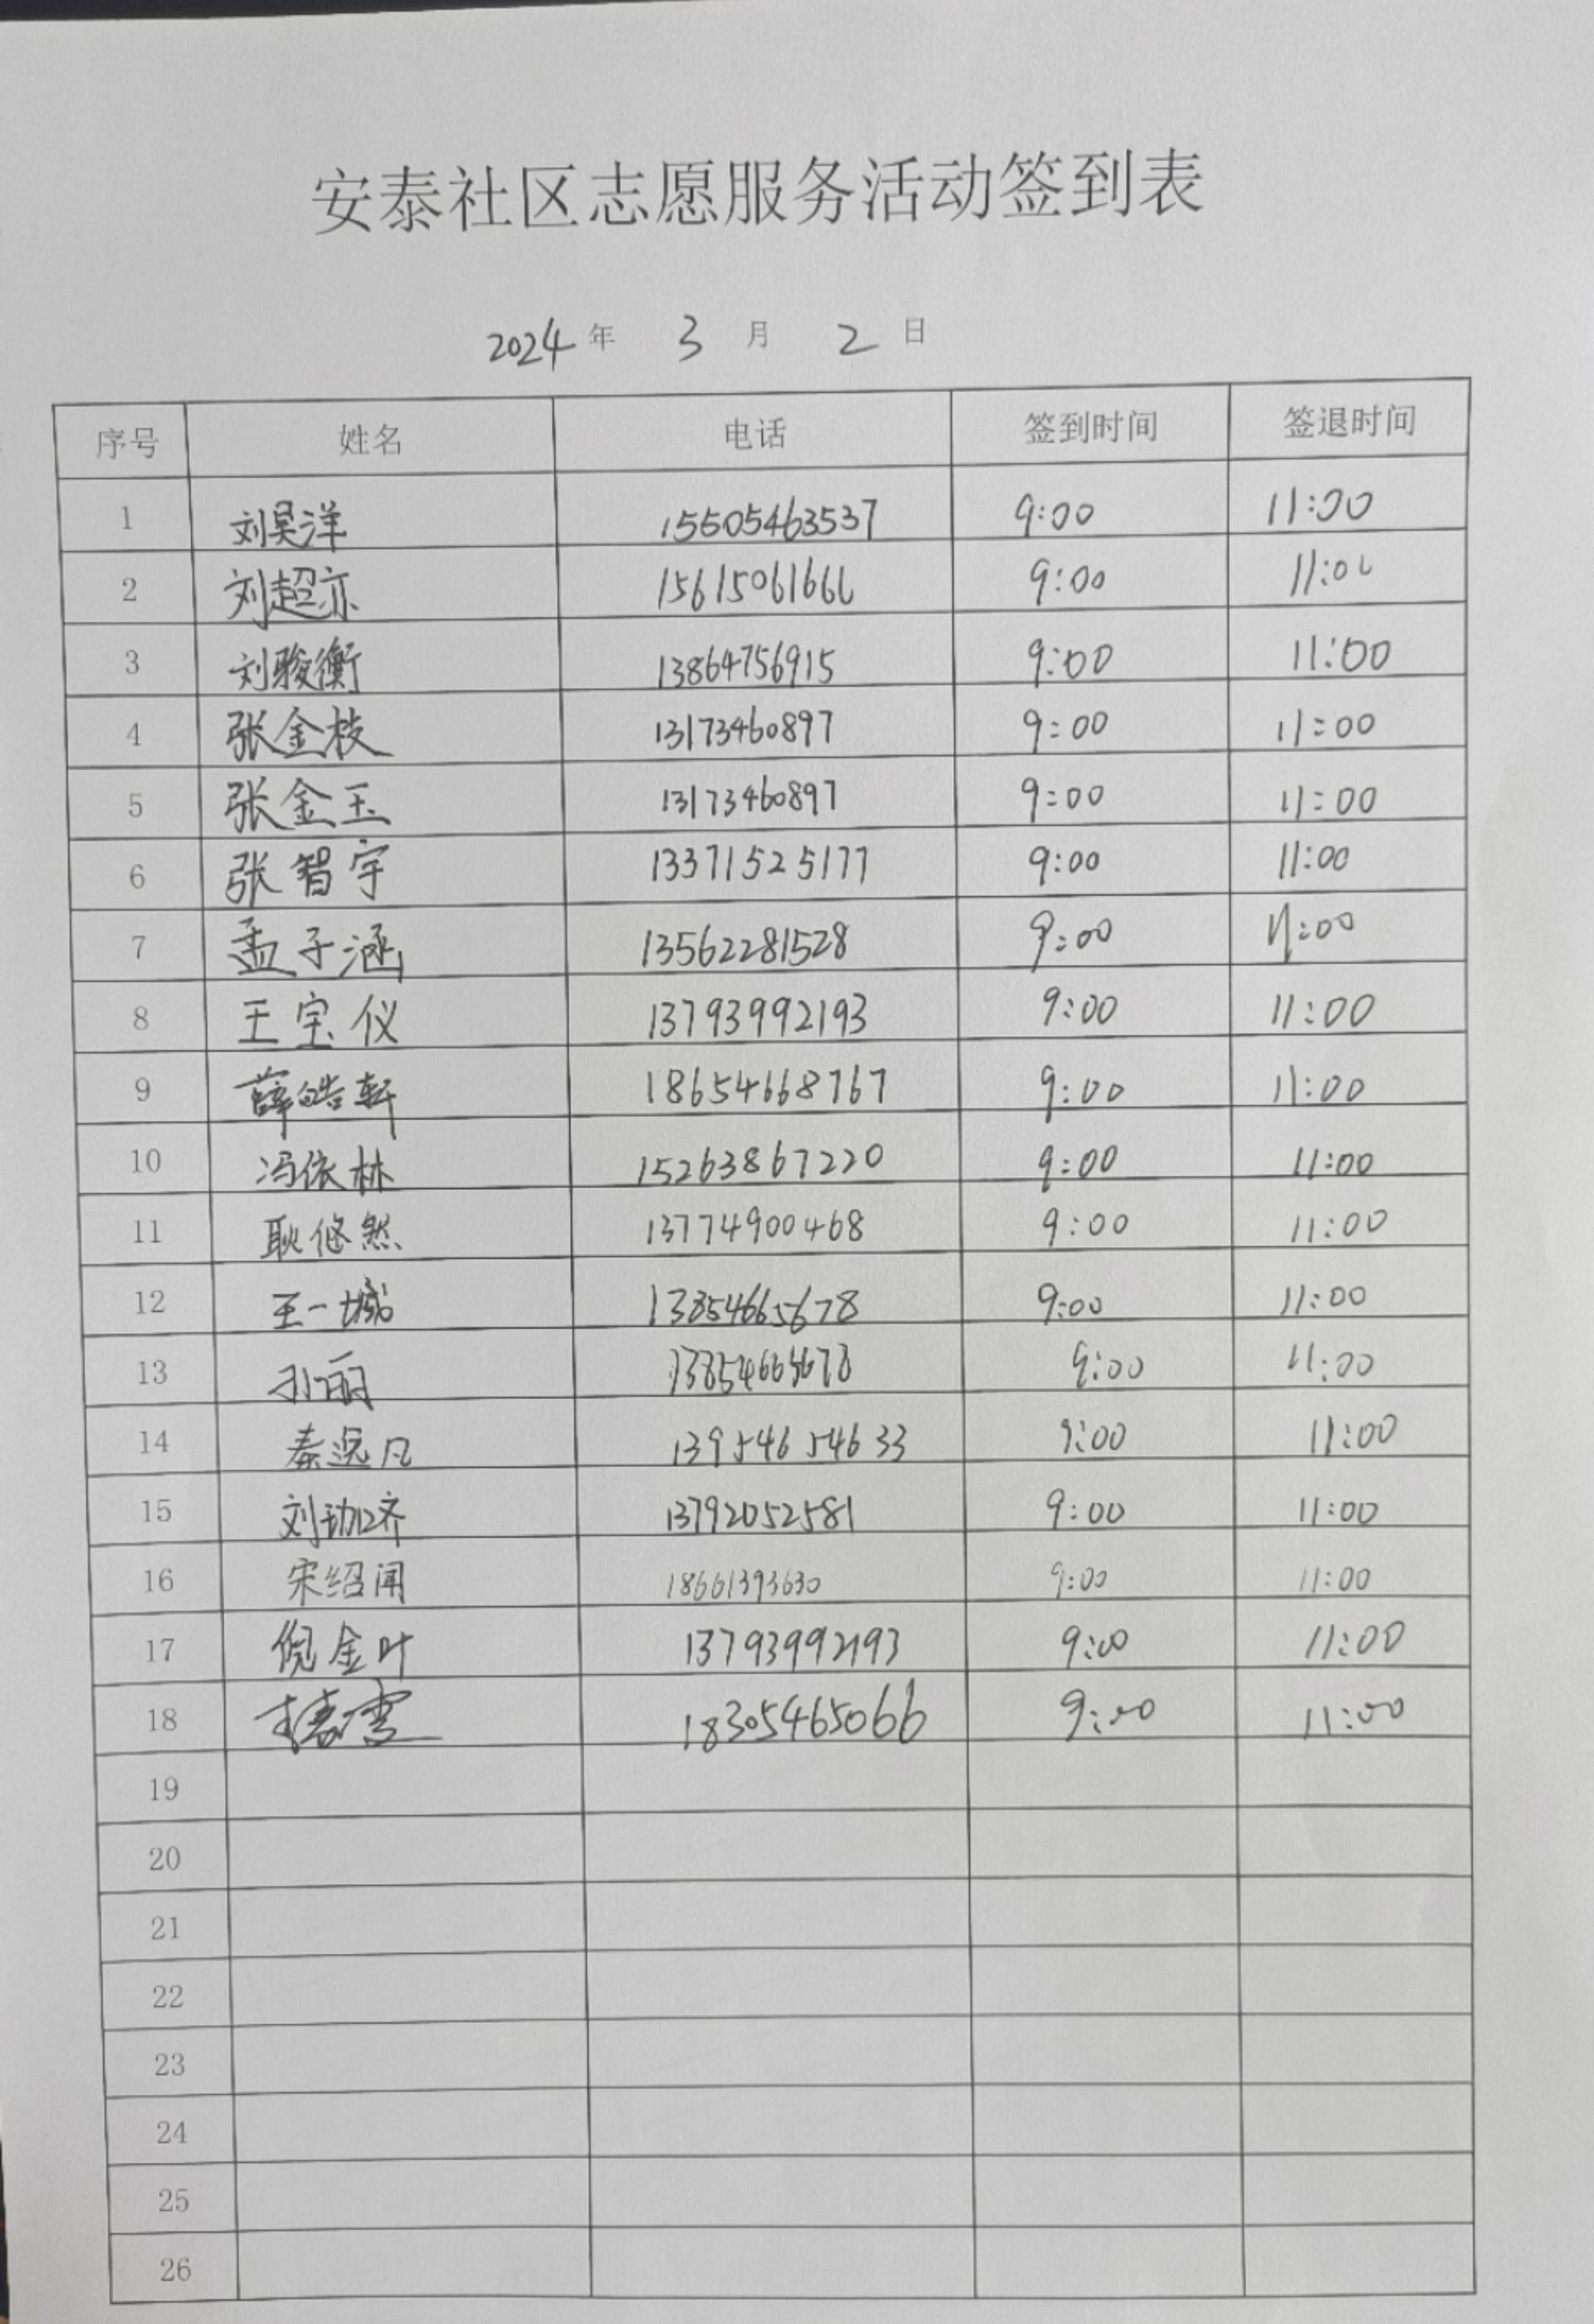 安泰社区志愿服务活动签到表
2024 年 3 月 2 日
序号 姓名 电话 签到时间 签退时间
1 刘昊洋 15505463537 9:00 11:00
2 刘超亦 15615061666 9:00 11:00
3 刘骏衡 13864756915 9:00 11:00
4 张金枝 13173460897 9:00 11:00
5 张金玉 13173460897 9:00 11:00
6 张智宇 13371525177 9:00 11:00
7 孟子涵 13562281528 9:00 11:00
8 王宝仪 13793992193 9:00 11:00
9 薛皓轩 18654668767 9:00 11:00
10 冯依林 15263867220 9:00 11:00
11 耿悠然 13774900468 9:00 11:00
12 王一城 13854665678 9:00 11:00
13 孙丽 13854665678 9:00 11:00
14 秦远凡 13954654633 9:00 11:00
15 刘珈齐 13792052581 9:00 11:00
16 宋绍闻 18661393630 9:00 11:00
17 倪金叶 13793992193 9:00 11:00
18 18305465066 9:00 11:00
19
20
21
22
23
24
25
26